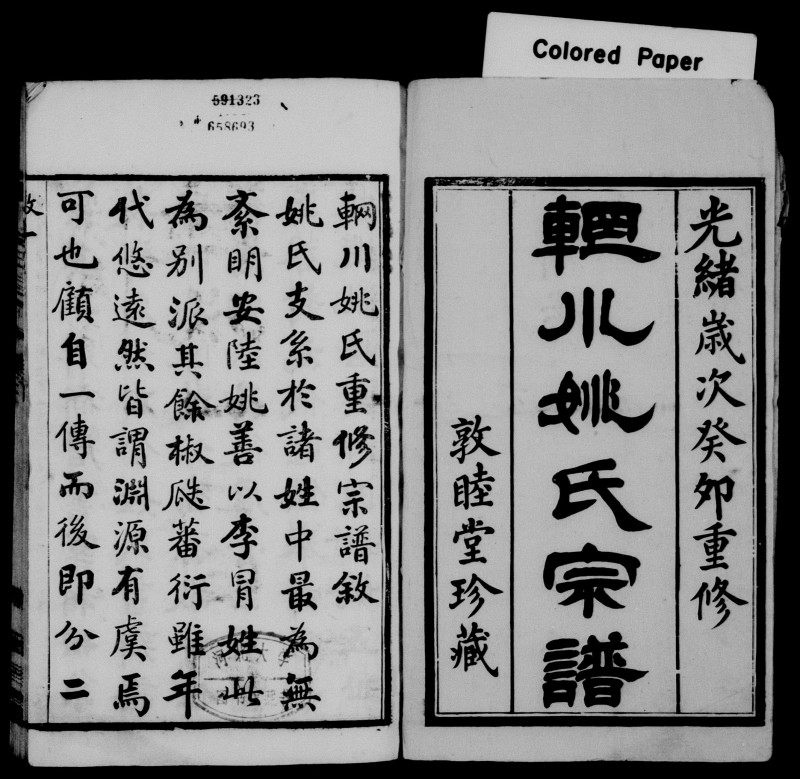 Colored Paper
光緒歲次癸卯重修
輞川姚氏宗譜
敦睦堂珍藏
591323
658693
輞川姚氏重修宗譜敘
姚氏支系於諸姓中最為無
紊明安陸姚善以李冒姓此
為別派其餘椒瓞蕃衍雖年
代悠遠然皆謂淵源有虞焉
可也顧自一傳而後即分二